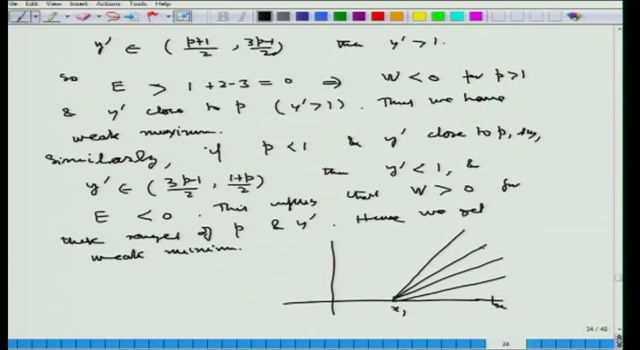 File Edit View Insert Actions Tools Help
y' ∈ ( p+1/2 , 3p-1/2 ) then y' > 1.
So E > 1+2-3 = 0 ⇒ W < 0 for p>1
& y' close to p (y'>1). Thus we have
weak maximum.
Similarly, if p < 1 & y' close to p, say,
y' ∈ ( 3p-1/2 , 1+p/2 ) then y' < 1, &
E < 0. This implies that W > 0 for
these ranges of p & y'. Hence we get
weak minimum.
x₁
34 / 40
34